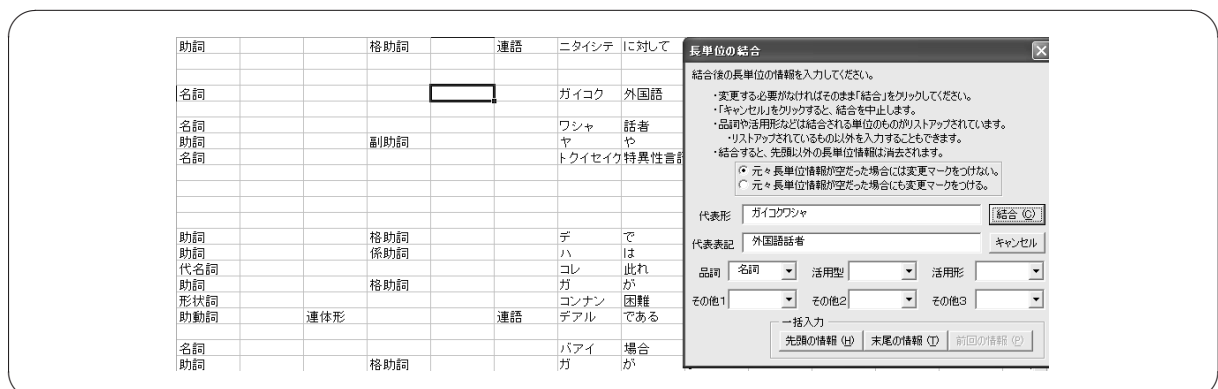 助詞 格助詞 連語 ニタイシテ に対して
名詞 ガイコク 外国語
名詞 ワシャ 話者
助詞 副助詞 ヤ や
名詞 トクイセイケ 特異性言語
助詞 格助詞 デ で
助詞 係助詞 ハ は
代名詞 コレ 此れ
助詞 格助詞 ガ が
形状詞 コンナン 困難
助動詞 連体形 連語 デアル である
名詞 バアイ 場合
助詞 格助詞 ガ が
長単位の結合
結合後の長単位の情報を入力してください。
・変更する必要がなければそのまま「結合」をクリックしてください。
・「キャンセル」をクリックすると、結合を中止します。
・品詞や活用形などは結合される単位のものがリストアップされています。
・リストアップされているもの以外を入力することもできます。
・結合すると、先頭以外の長単位情報は消去されます。
元々長単位情報が空だった場合には変更マークをつけない。
元々長単位情報が空だった場合にも変更マークをつける。
代表形 ガイコクワシャ 結合 (C)
代表表記 外国語話者 キャンセル
品詞 名詞 活用型 活用形
その他1 その他2 その他3
一括入力
先頭の情報 (H) 末尾の情報 (T) 前回の情報 (P)